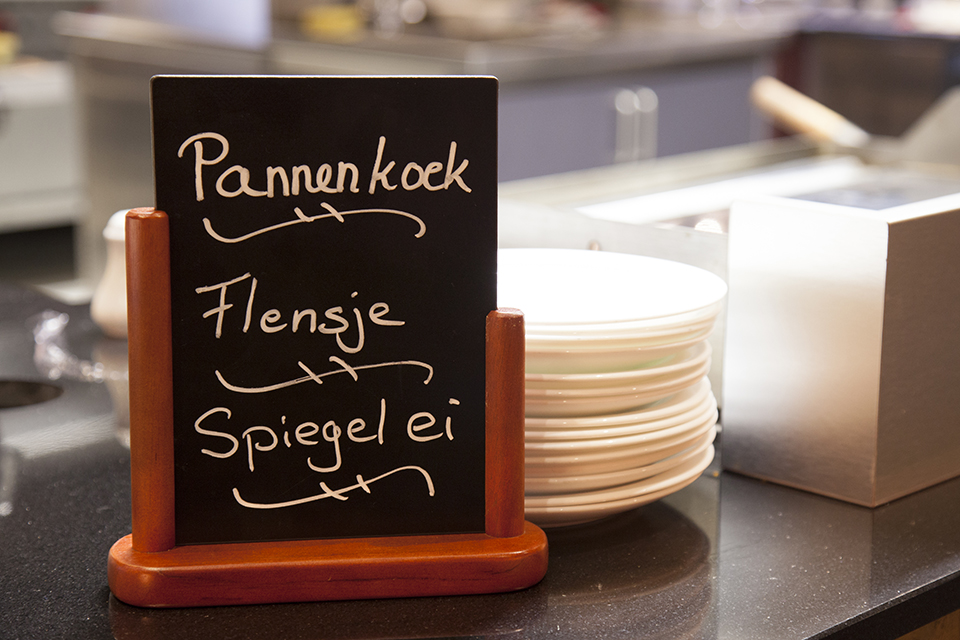 Pannenkoek
Flensje
Spiegel ei